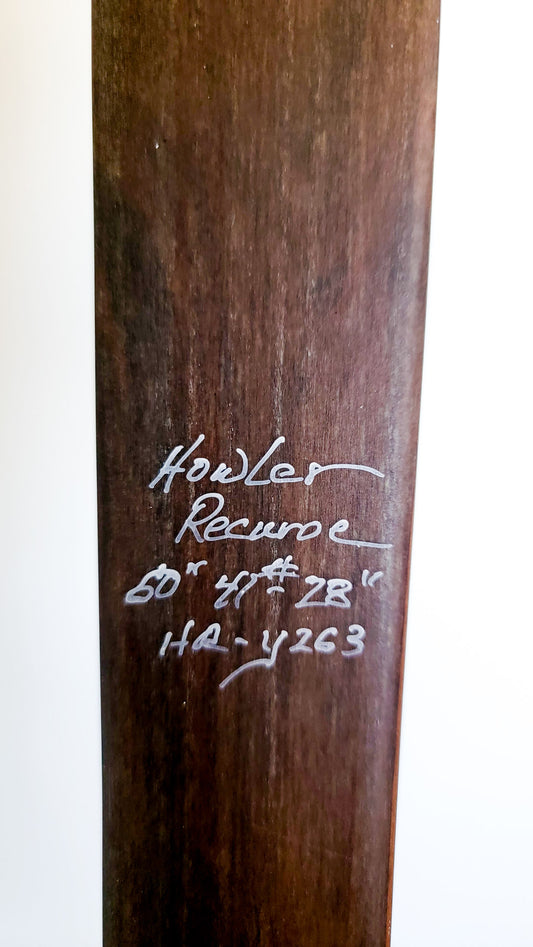 Howler
Recurve
60" 41#- 28"
HR-Y263